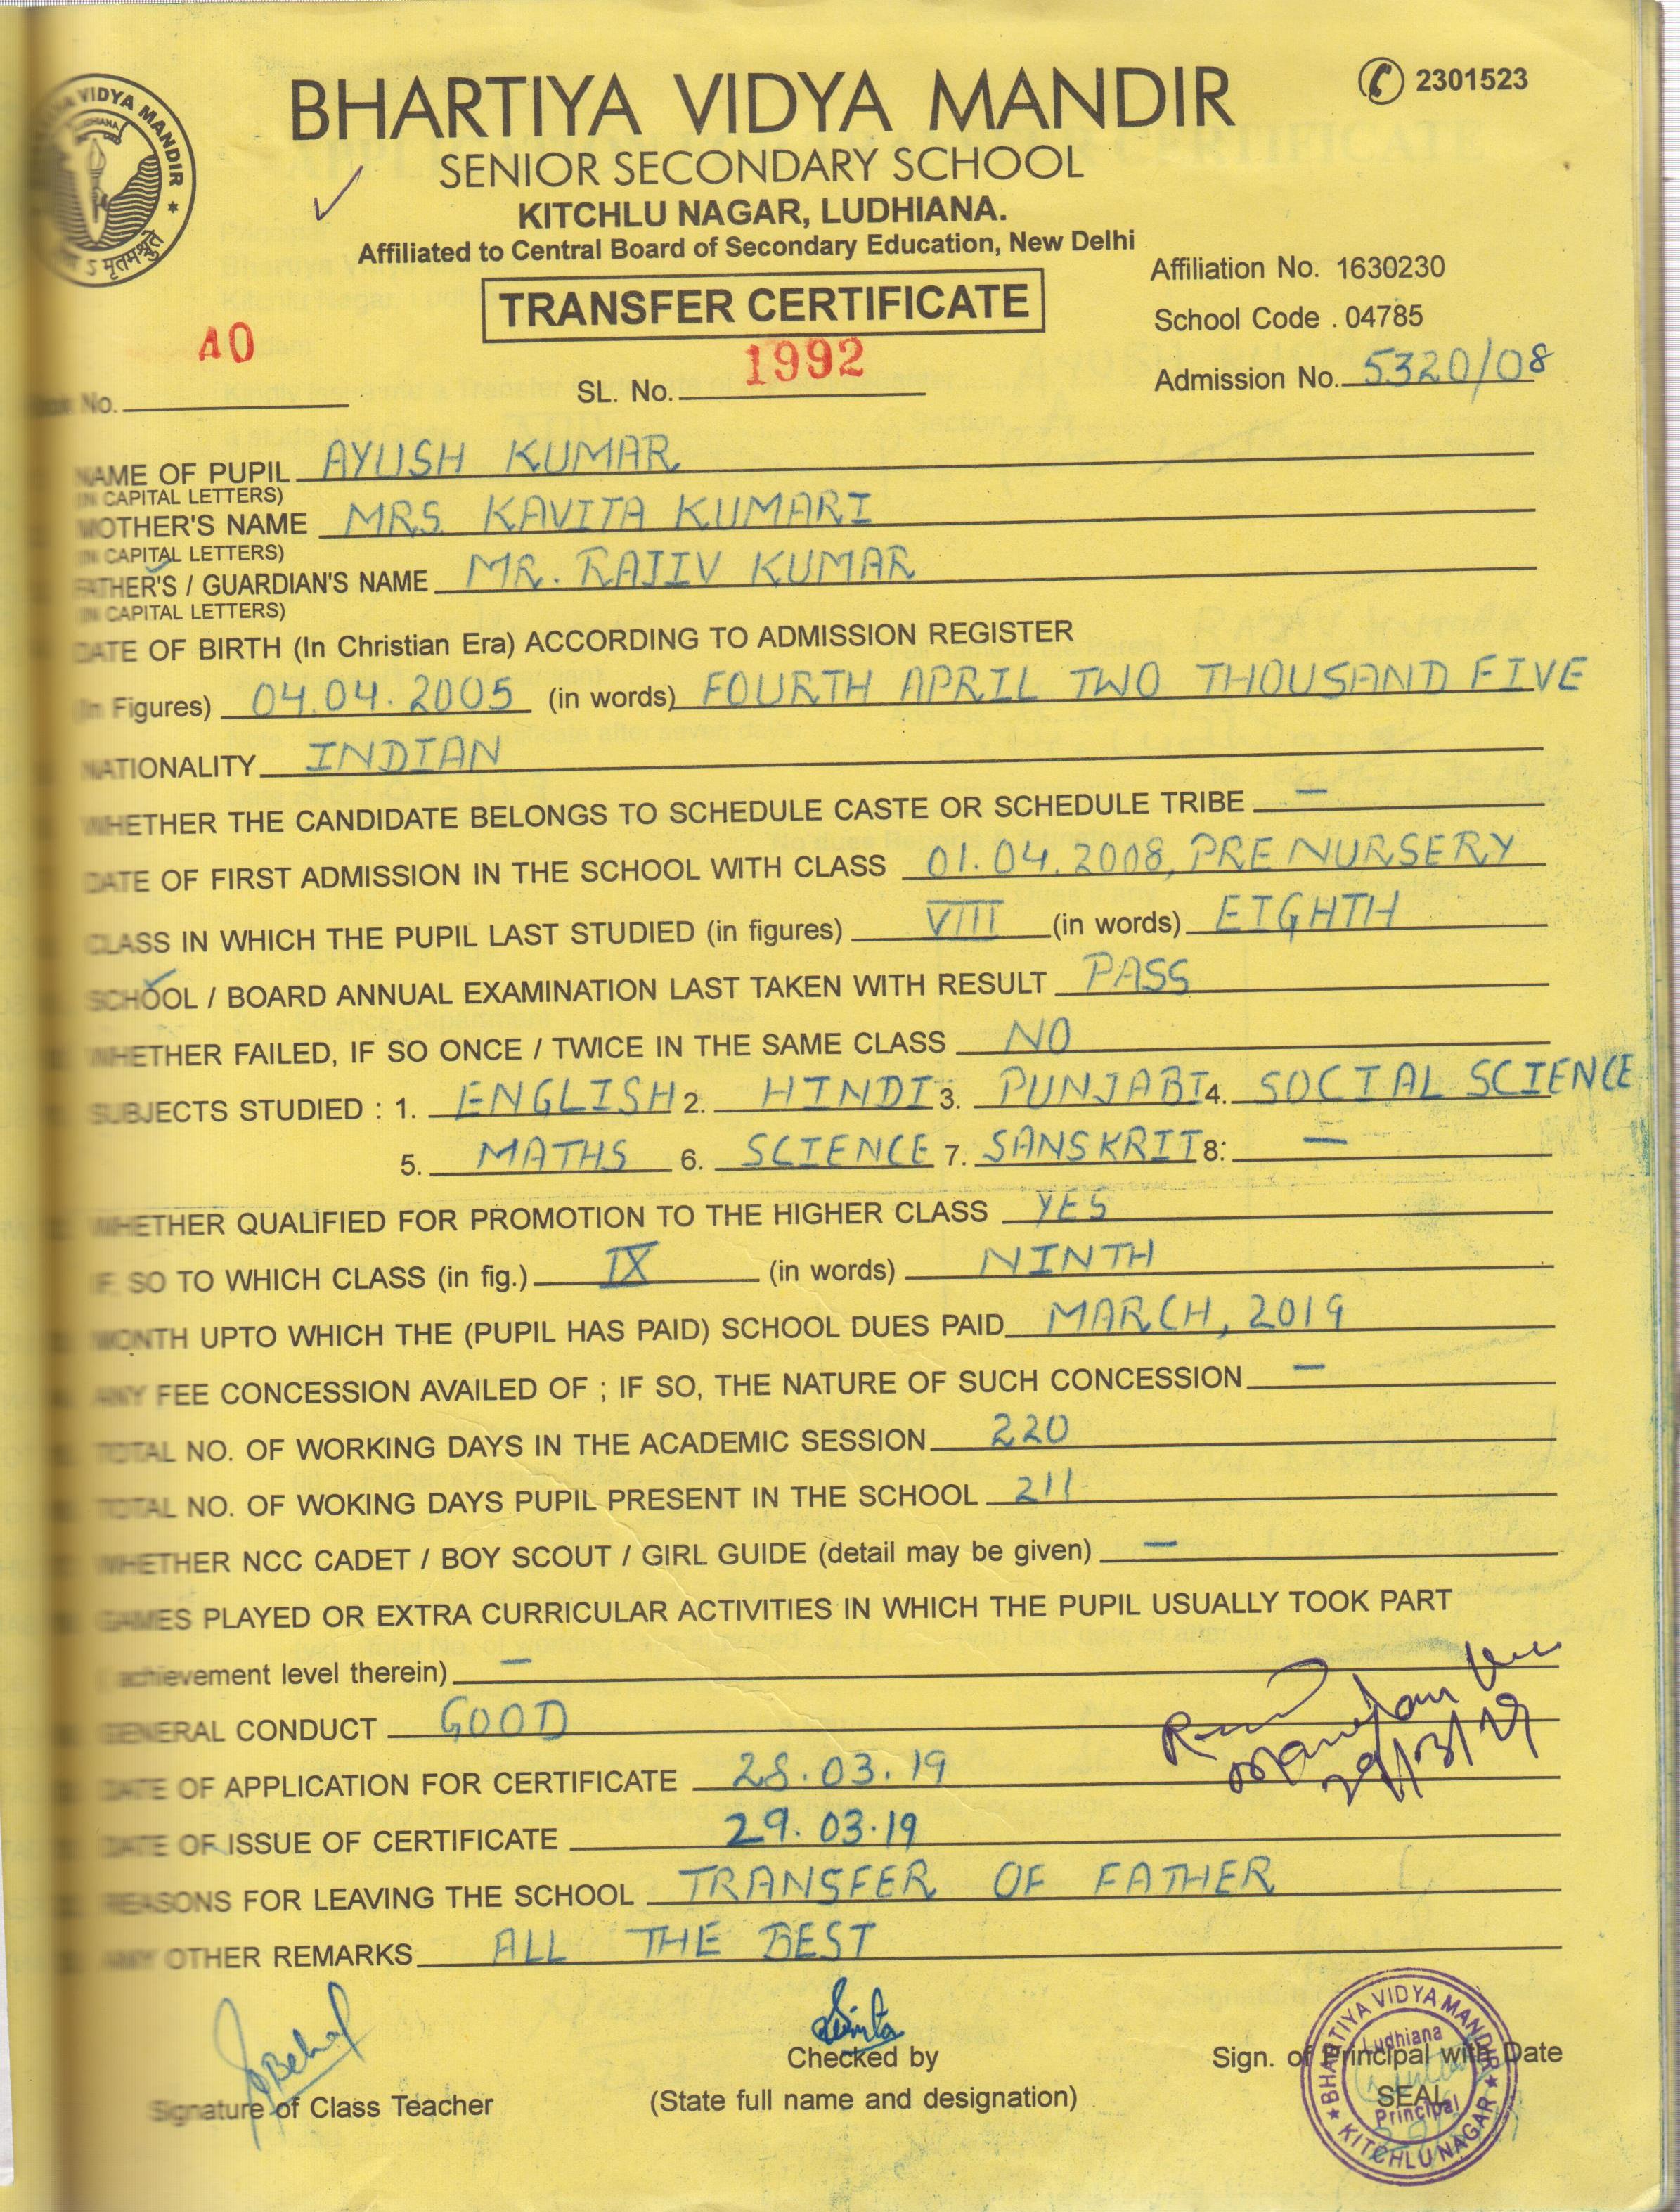 VIDYA MANDIR
BHARTIYA VIDYA MANDIR
2301523
SENIOR SECONDARY SCHOOL
KITCHLU NAGAR, LUDHIANA.
Affiliated to Central Board of Secondary Education, New Delhi
Affiliation No. 1630230
TRANSFER CERTIFICATE
School Code . 04785
40
No.
SL. No. 1992
Admission No. 5320/08
NAME OF PUPIL AYUSH KUMAR
(IN CAPITAL LETTERS)
MOTHER'S NAME MRS. KAVITA KUMARI
(IN CAPITAL LETTERS)
FATHER'S / GUARDIAN'S NAME MR. RAJIV KUMAR
(IN CAPITAL LETTERS)
DATE OF BIRTH (In Christian Era) ACCORDING TO ADMISSION REGISTER
(In Figures) 04.04.2005 (in words) FOURTH APRIL TWO THOUSAND FIVE
NATIONALITY INDIAN
WHETHER THE CANDIDATE BELONGS TO SCHEDULE CASTE OR SCHEDULE TRIBE —
DATE OF FIRST ADMISSION IN THE SCHOOL WITH CLASS 01.04.2008, PRE NURSERY
CLASS IN WHICH THE PUPIL LAST STUDIED (in figures) VIII (in words) EIGHTH
SCHOOL / BOARD ANNUAL EXAMINATION LAST TAKEN WITH RESULT PASS
WHETHER FAILED, IF SO ONCE / TWICE IN THE SAME CLASS NO
SUBJECTS STUDIED : 1. ENGLISH 2. HINDI 3. PUNJABI 4. SOCIAL SCIENCE
5. MATHS 6. SCIENCE 7. SANSKRIT 8: —
WHETHER QUALIFIED FOR PROMOTION TO THE HIGHER CLASS YES
IF SO TO WHICH CLASS (in fig.) IX (in words) NINTH
MONTH UPTO WHICH THE (PUPIL HAS PAID) SCHOOL DUES PAID MARCH, 2019
ANY FEE CONCESSION AVAILED OF ; IF SO, THE NATURE OF SUCH CONCESSION —
TOTAL NO. OF WORKING DAYS IN THE ACADEMIC SESSION 220
TOTAL NO. OF WOKING DAYS PUPIL PRESENT IN THE SCHOOL 211
WHETHER NCC CADET / BOY SCOUT / GIRL GUIDE (detail may be given) —
GAMES PLAYED OR EXTRA CURRICULAR ACTIVITIES IN WHICH THE PUPIL USUALLY TOOK PART
achievement level therein) —
GENERAL CONDUCT GOOD
DATE OF APPLICATION FOR CERTIFICATE 28.03.19
29/3/19
DATE OF ISSUE OF CERTIFICATE 29.03.19
REASONS FOR LEAVING THE SCHOOL TRANSFER OF FATHER
ANY OTHER REMARKS ALL THE BEST
Signature of Class Teacher
Checked by
(State full name and designation)
Sign. of Principal with Date
SEAL
BHARTIYA VIDYA MANDIR
Ludhiana
Principal
KITCHLU NAGAR